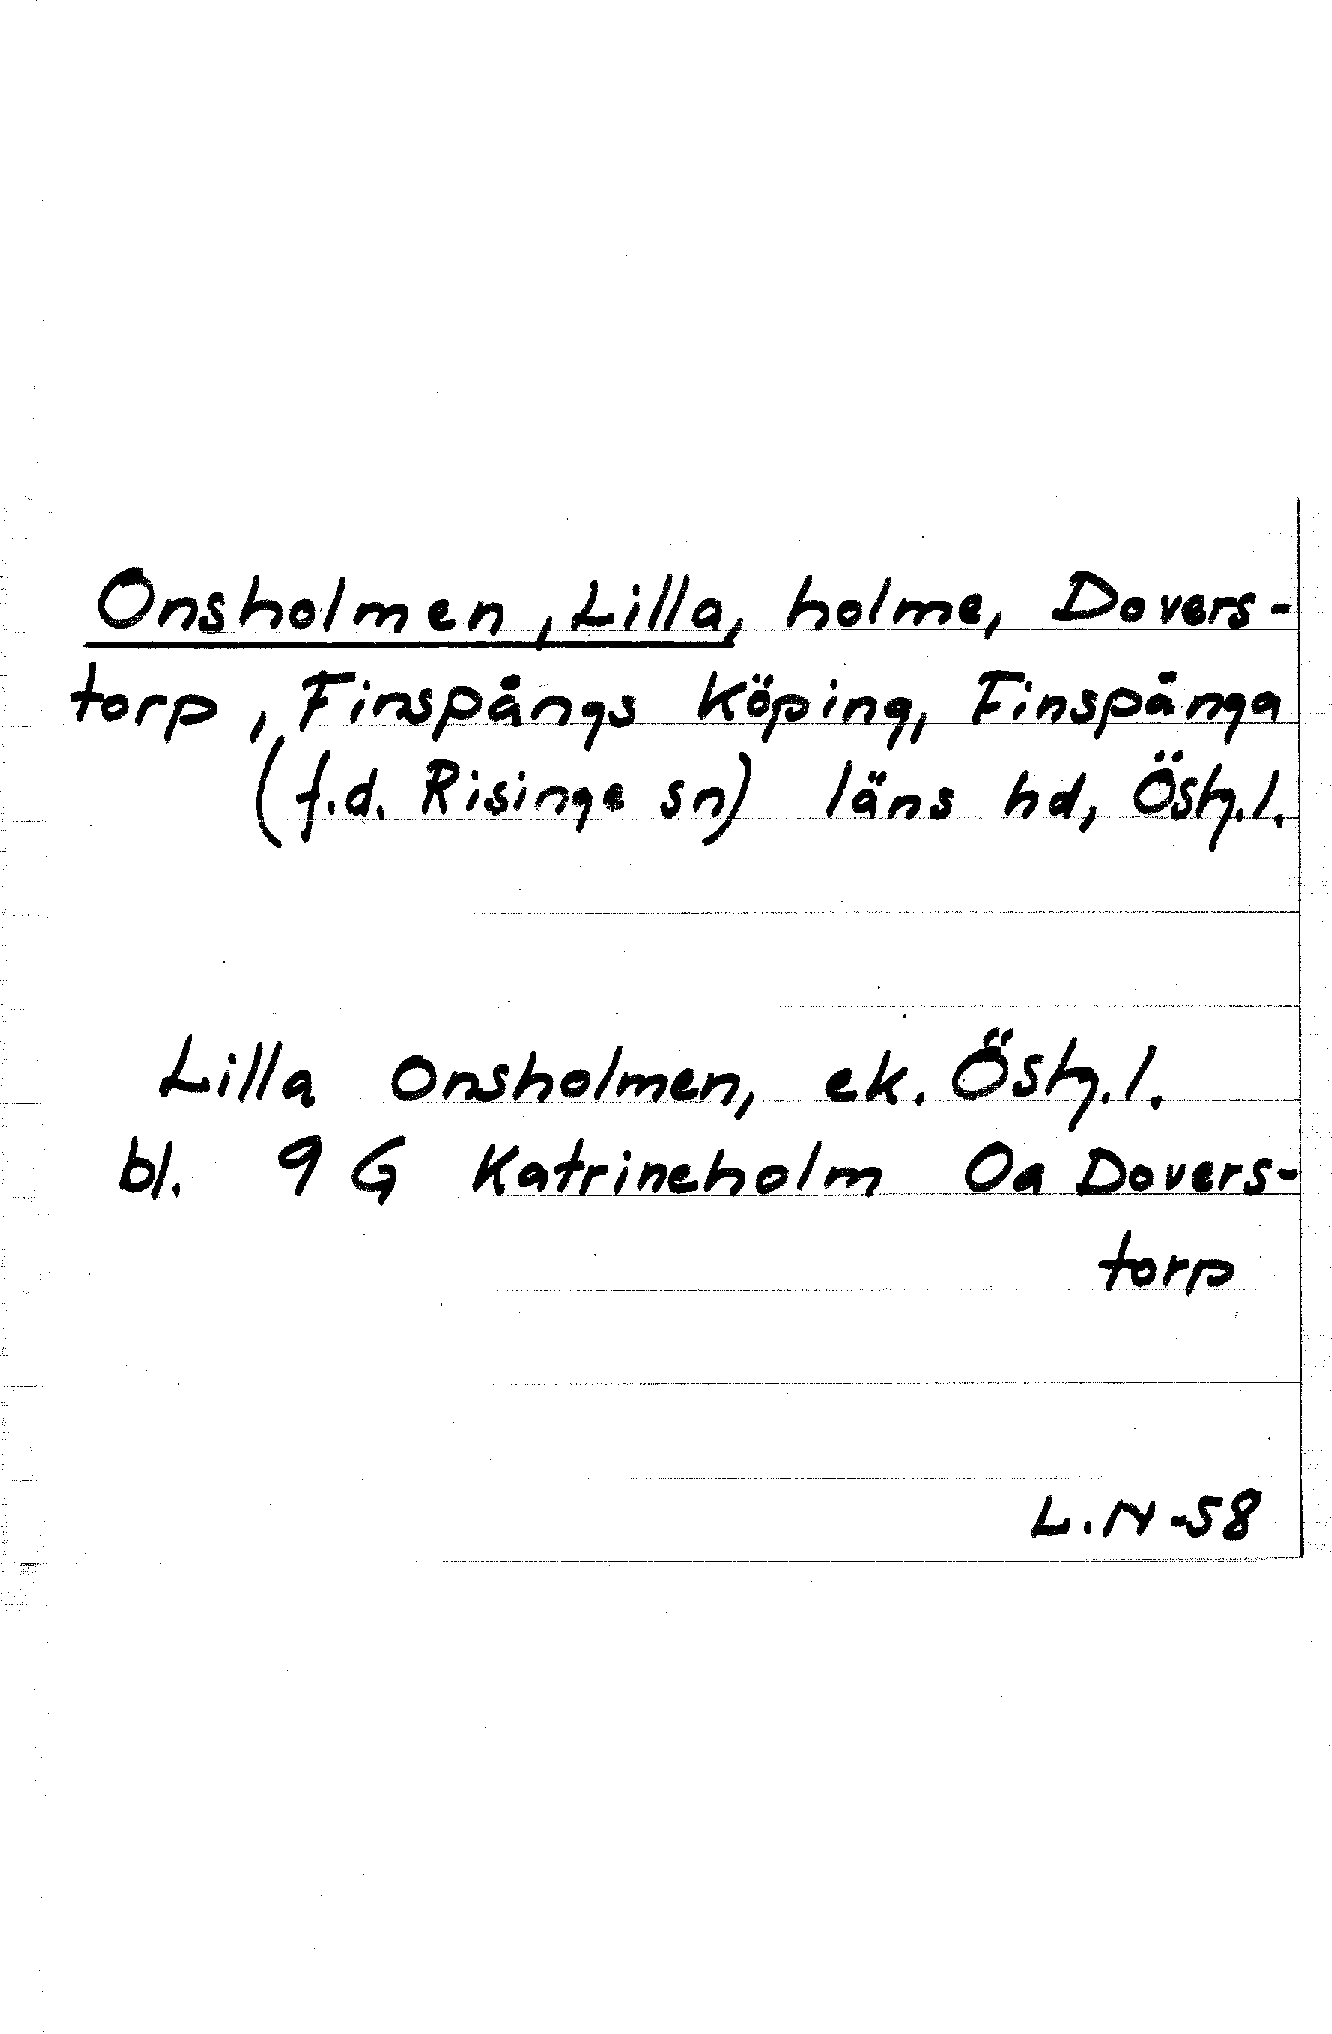 Onsholmen, Lilla, holme, Dovers-
torp, Finspångs köping, Finspånga
(f.d. Risinge sn) läns hd, Östg.l.
Lilla Onsholmen, ek. Östg.l.
bl. 9 G Katrineholm Oa Dovers-
torp
L.N-58